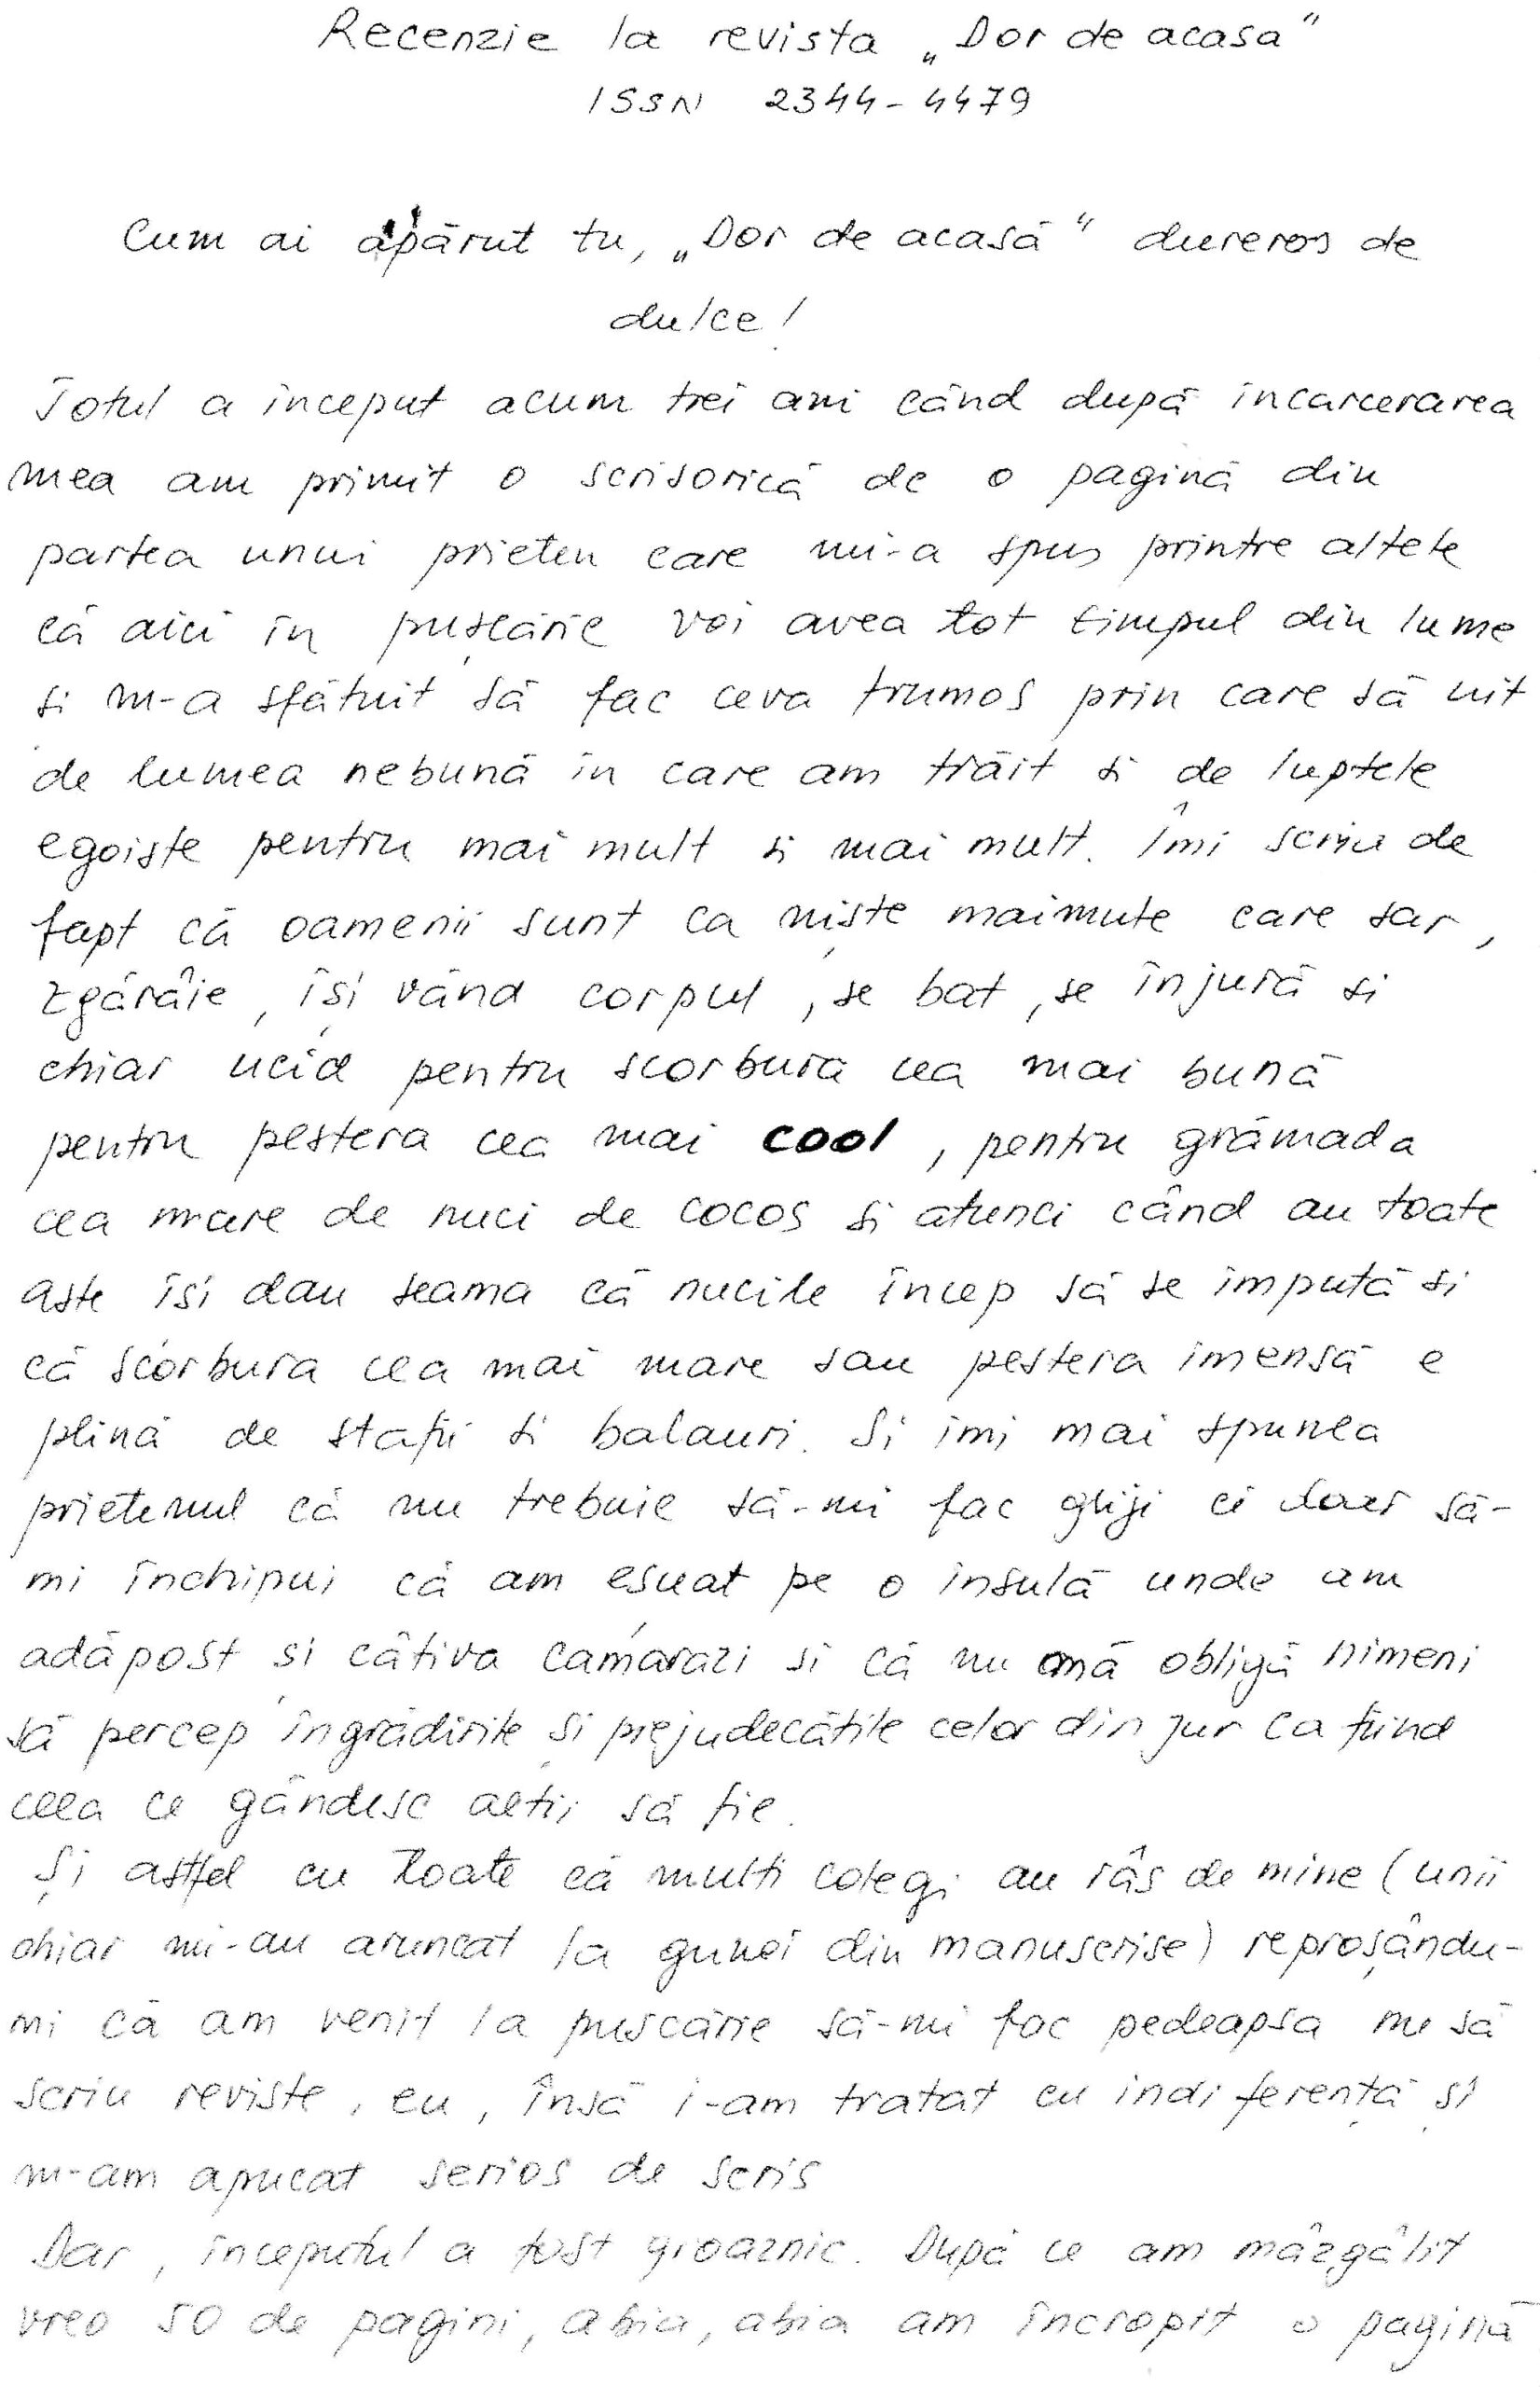 Recenzie la revista „Dor de acasa"
ISSN 2344-4479
Cum ai apărut tu, „Dor de acasă" dureros de
dulce!
Totul a inceput acum trei ani când după incarcerarea
mea am primit o scrisorică de o pagină din
partea unui prieten care mi-a spus printre altele
că aici în pușcărie voi avea tot timpul din lume
si m-a sfătuit să fac ceva frumos prin care să uit
de lumea nebună in care am trăit si de luptele
egoiste pentru mai mult si mai mult. Îmi scria de
fapt că oamenii sunt ca niște maimute care sar,
zgârâie, își vând corpul, se bat, se înjură si
chiar ucid pentru scorbura cea mai bună
pentru pestera cea mai cool, pentru grămada
cea mare de nuci de cocos si atunci când au toate
aste isi dau seama că nucile încep să se impută si
că scorbura cea mai mare sau pestera imensă e
plină de stafii si balauri. Si imi mai spunea
prietenul că nu trebuie să-mi fac griji ci doar să-
mi închipui că am esuat pe o insulă unde am
adăpost si câtiva camarazi si că nu mă obligă nimeni
să percep îngrădirile și prejudecătile celor din jur ca fiind
ceea ce gândesc altii să fie.
Și astfel cu toate că multi colegi au râs de mine (unii
chiar mi-au aruncat la gunoi din manuscrise) reproșându-
mi că am venit la puscărie să-mi fac pedeapsa nu să
scriu reviste, eu, însă i-am tratat cu indiferență și
m-am apucat serios de scris
Dar, începutul a fost groaznic. După ce am mâzgâlit
vreo 50 de pagini, abia, abia am încropit o pagină